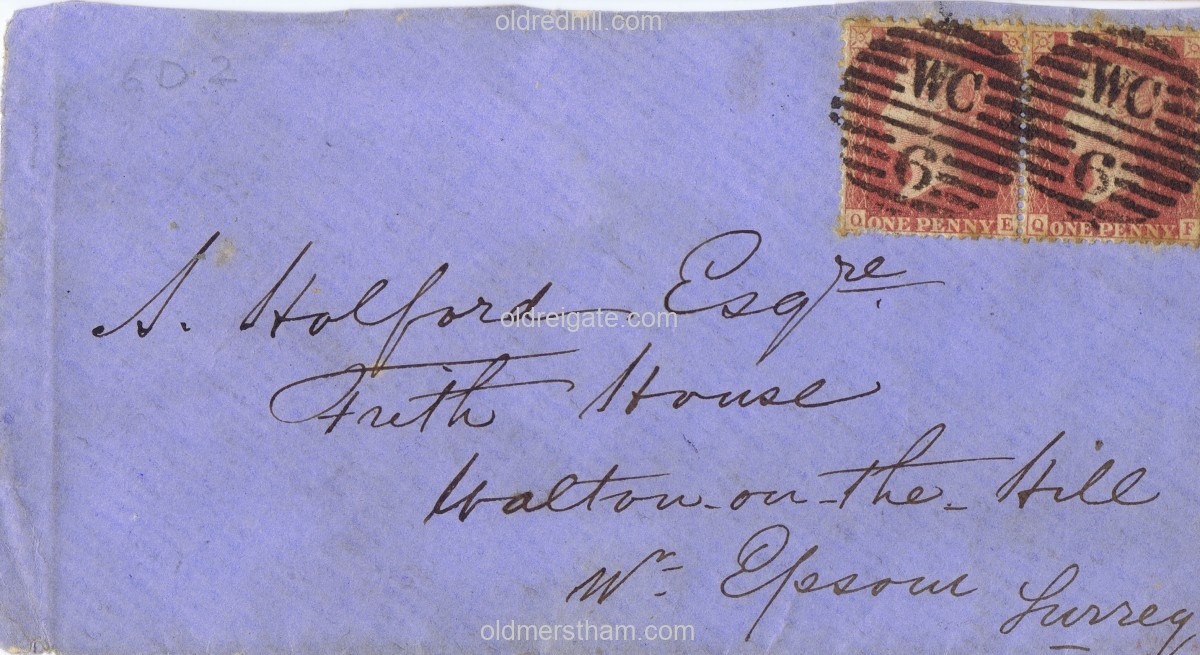 oldredhill.com
6D2
WC
6
Q ONE PENNY E
WC
6
Q ONE PENNY F
S. Holford Esqre
oldreigate.com
Frith House
Walton-on-the-Hill
Nr Epsom Surrey
oldmerstham.com